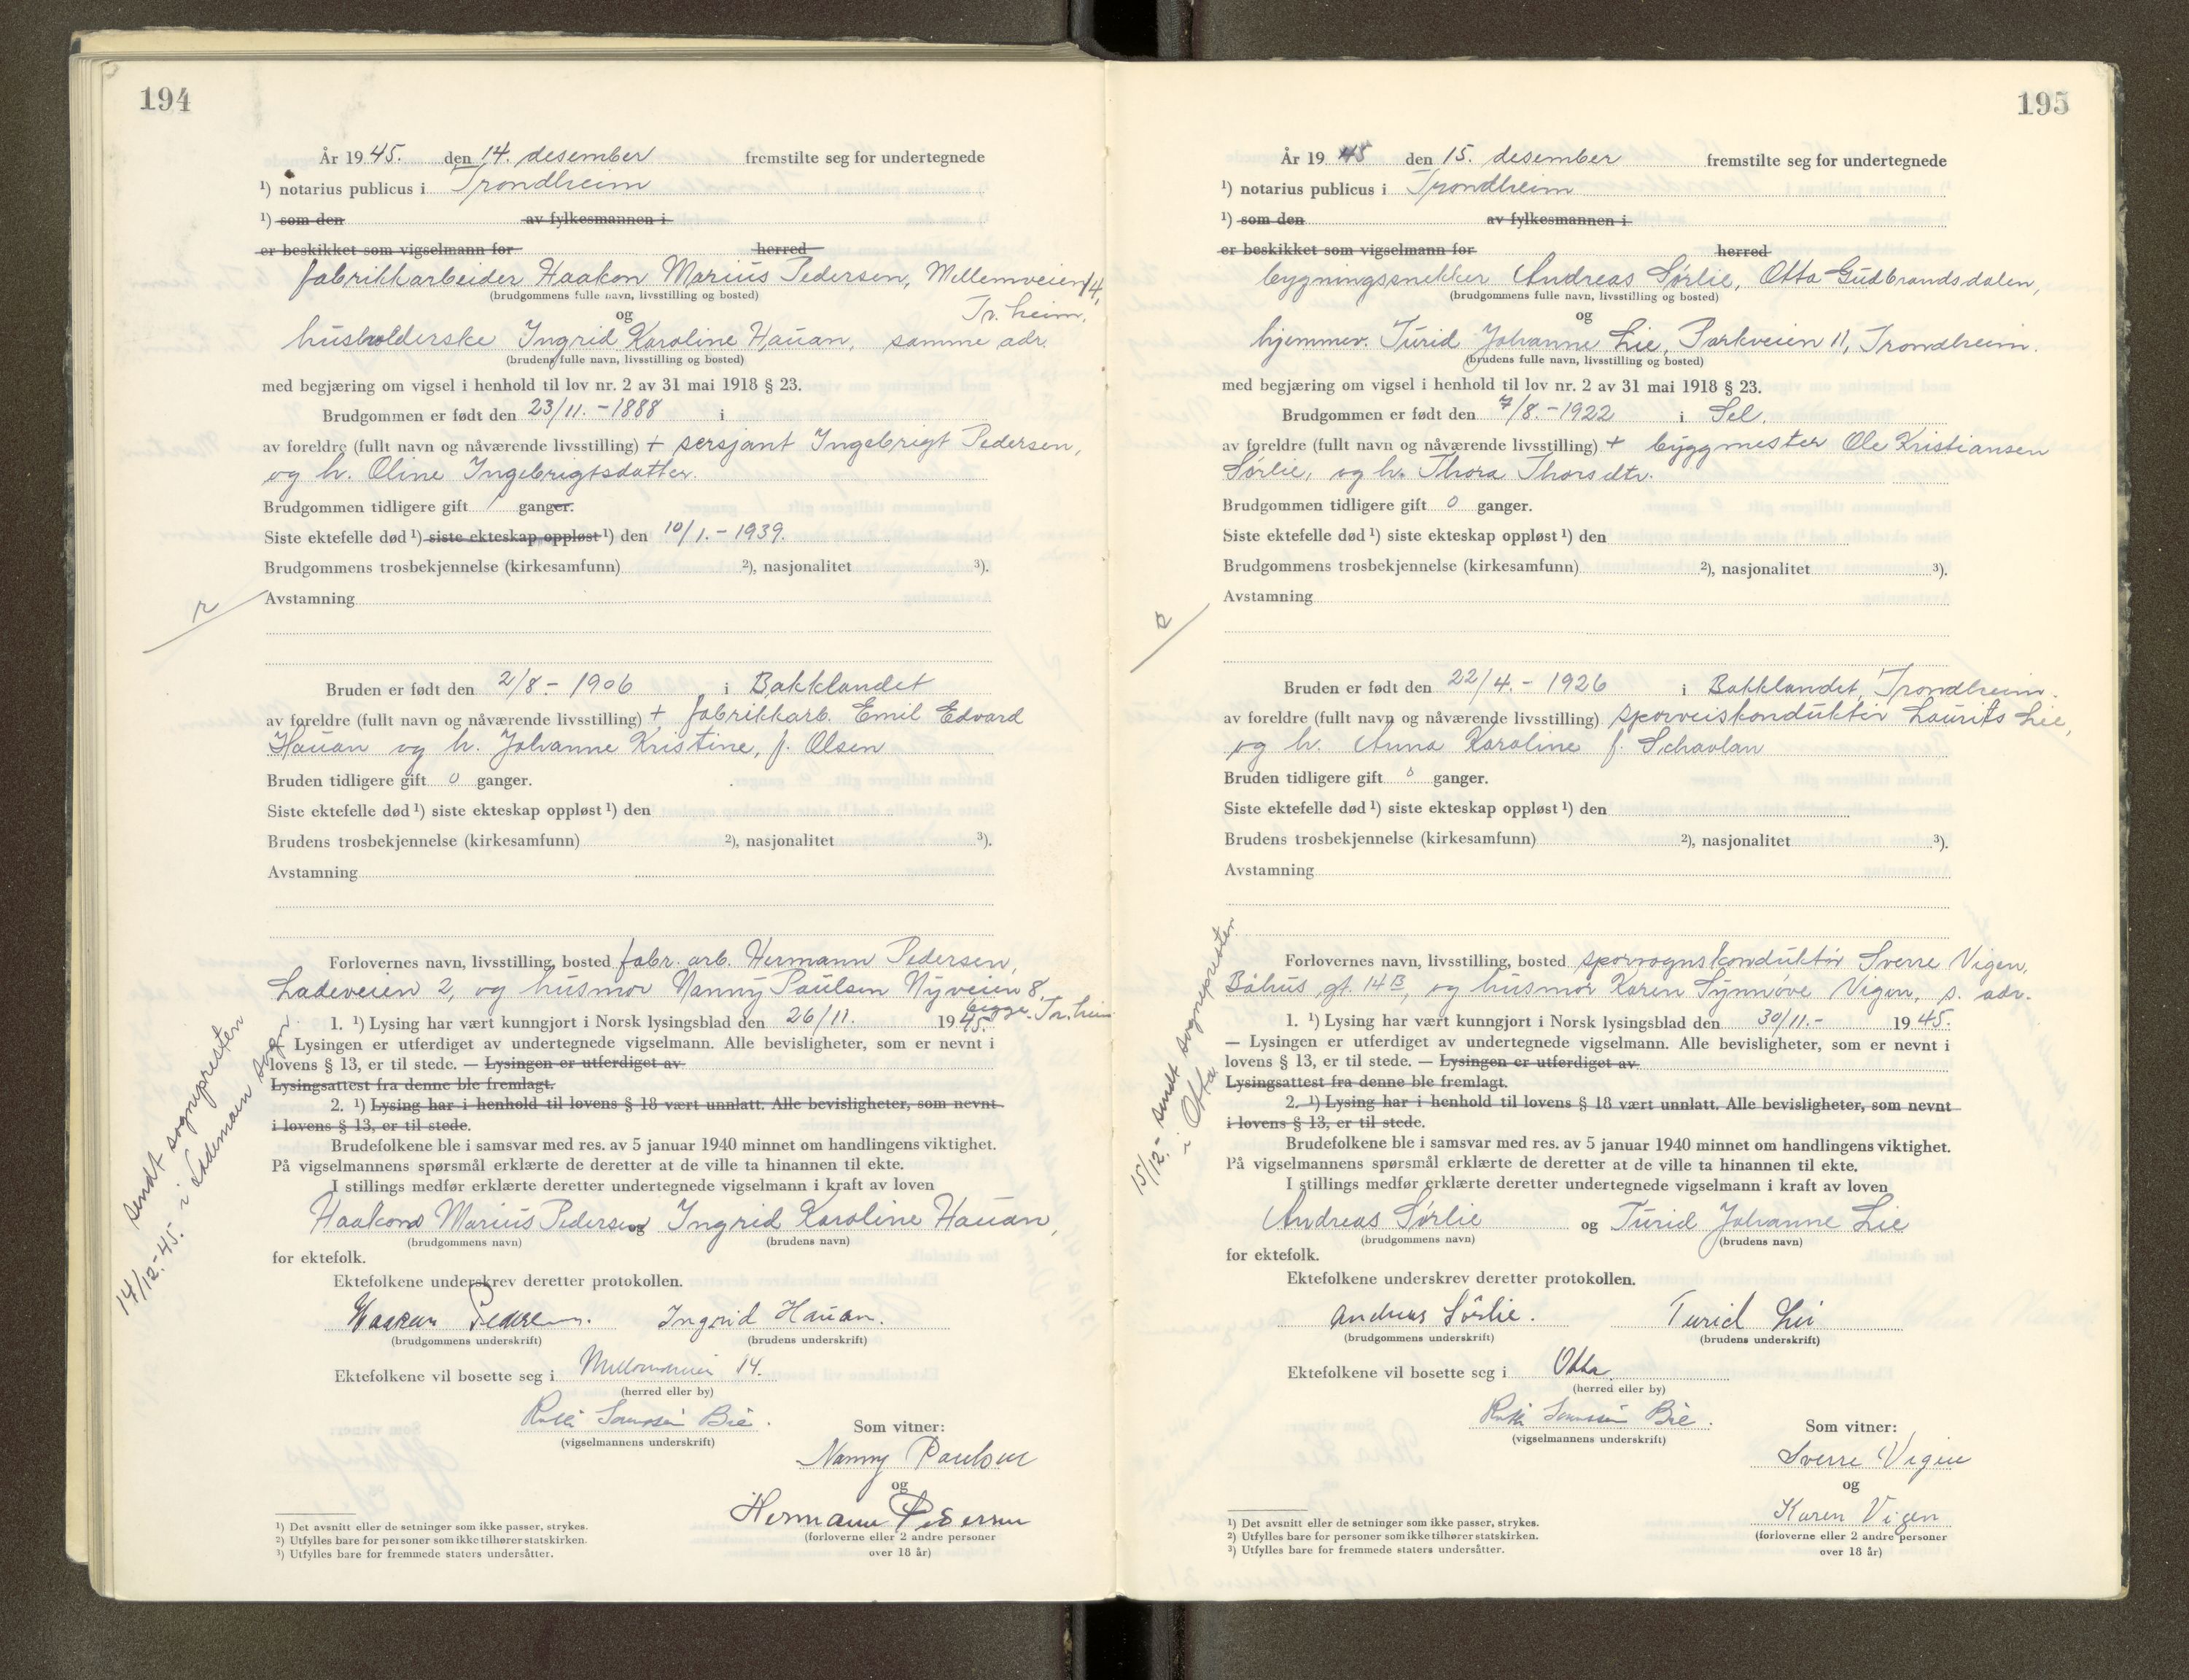 194
År 1945. den 14. desember fremstilte seg for undertegnede
¹) notarius publicus i Trondheim
¹) som den av fylkesmannen i
er beskikket som vigselmann for herred
fabrikkarbeider Haakon Marius Pedersen, Mellemveien 14,
(brudgommens fulle navn, livsstilling og bosted)
og Tr.heim,
husholderske Ingrid Karoline Hauan, samme adr.
(brudens fulle navn, livsstilling og bosted)
med begjæring om vigsel i henhold til lov nr. 2 av 31 mai 1918 § 23.
Brudgommen er født den 23/11.-1888 i
av foreldre (fullt navn og nåværende livsstilling) + sersjant Ingebrigt Pedersen,
og h. Oline Ingebrigtsdatter.
Brudgommen tidligere gift 1 ganger.
Siste ektefelle død ¹) siste ekteskap oppløst ¹) den 10/1.-1939.
Brudgommens trosbekjennelse (kirkesamfunn) ²), nasjonalitet ³).
Avstamning
Bruden er født den 2/8.-1906 i Bakklandet
av foreldre (fullt navn og nåværende livsstilling) + fabrikkarb. Emil Edvard
Hauan og h. Johanne Kristine, f. Olsen
Bruden tidligere gift 0 ganger.
Siste ektefelle død ¹) siste ekteskap oppløst ¹) den
Brudens trosbekjennelse (kirkesamfunn) ²), nasjonalitet ³).
Avstamning
Forlovernes navn, livsstilling, bosted fabr. arb. Hermann Pedersen,
Ladeveien 2, og husmor Nanny Paulsen Nyveien 8,
begge Tr.heim
1. ¹) Lysing har vært kunngjort i Norsk lysingsblad den 26/11. 1945.
— Lysingen er utferdiget av undertegnede vigselmann. Alle bevisligheter, som er nevnt i
lovens § 13, er til stede. — Lysingen er utferdiget av
Lysingsattest fra denne ble fremlagt.
2. ¹) Lysing har i henhold til lovens § 18 vært unnlatt. Alle bevisligheter, som nevnt
i lovens § 13, er til stede.
Brudefolkene ble i samsvar med res. av 5 januar 1940 minnet om handlingens viktighet.
På vigselmannens spørsmål erklærte de deretter at de ville ta hinannen til ekte.
I stillings medfør erklærte deretter undertegnede vigselmann i kraft av loven
Haakon Marius Pedersen og Ingrid Karoline Hauan,
(brudgommens navn) (brudens navn)
for ektefolk.
Ektefolkene underskrev deretter protokollen.
Haakon Pedersen. Ingrid Hauan.
(brudgommens underskrift) (brudens underskrift)
Ektefolkene vil bosette seg i Mellomveien 14.
(herred eller by)
Bie.
(vigselmannens underskrift)
Som vitner:
Nanny Paulsen
og
Hermann Pedersen
(forloverne eller 2 andre personer
over 18 år)
¹) Det avsnitt eller de setninger som ikke passer, strykes.
²) Utfylles bare for personer som ikke tilhører statskirken.
³) Utfylles bare for fremmede staters undersåtter.
14/12.-45. sendt sognepresten
i Lademoen sogn
195
År 1945 den 15. desember fremstilte seg for undertegnede
¹) notarius publicus i Trondheim
¹) som den av fylkesmannen i
er beskikket som vigselmann for herred
bygningssnekker Andreas Sørlie, Otta Gudbrandsdalen,
(brudgommens fulle navn, livsstilling og bosted)
og
hjemmev. Turid Johanne Lie, Parkveien 11, Trondheim.
(brudens fulle navn, livsstilling og bosted)
med begjæring om vigsel i henhold til lov nr. 2 av 31 mai 1918 § 23.
Brudgommen er født den 7/8.-1922 i Sel.
av foreldre (fullt navn og nåværende livsstilling) + byggmester Ole Kristiansen
Sørlie, og h. Thora Thorsdtr.
Brudgommen tidligere gift 0 ganger.
Siste ektefelle død ¹) siste ekteskap oppløst ¹) den
Brudgommens trosbekjennelse (kirkesamfunn) ²), nasjonalitet ³).
Avstamning
Bruden er født den 22/4.-1926 i Bakklandet, Trondheim.
av foreldre (fullt navn og nåværende livsstilling) sporveiskonduktør Laurits Lie,
og h. Anna Karoline f. Schavlan
Bruden tidligere gift 0 ganger.
Siste ektefelle død ¹) siste ekteskap oppløst ¹) den
Brudens trosbekjennelse (kirkesamfunn) ²), nasjonalitet ³).
Avstamning
Forlovernes navn, livsstilling, bosted sporvognskonduktør Sverre Vigen,
Båhus gt. 14B, og husmor Karen Synnøve Vigen, s. adr.
1. ¹) Lysing har vært kunngjort i Norsk lysingsblad den 30/11.- 1945.
— Lysingen er utferdiget av undertegnede vigselmann. Alle bevisligheter, som er nevnt i
lovens § 13, er til stede. — Lysingen er utferdiget av
Lysingsattest fra denne ble fremlagt.
2. ¹) Lysing har i henhold til lovens § 18 vært unnlatt. Alle bevisligheter, som nevnt
i lovens § 13, er til stede.
Brudefolkene ble i samsvar med res. av 5 januar 1940 minnet om handlingens viktighet.
På vigselmannens spørsmål erklærte de deretter at de ville ta hinannen til ekte.
I stillings medfør erklærte deretter undertegnede vigselmann i kraft av loven
Andreas Sørlie og Turid Johanne Lie
(brudgommens navn) (brudens navn)
for ektefolk.
Ektefolkene underskrev deretter protokollen.
Andreas Sørlie. Turid Lie
(brudgommens underskrift) (brudens underskrift)
Ektefolkene vil bosette seg i Otta
(herred eller by)
Bie.
(vigselmannens underskrift)
Som vitner:
Sverre Vigen
og
Karen Vigen
(forloverne eller 2 andre personer
over 18 år)
¹) Det avsnitt eller de setninger som ikke passer, strykes.
²) Utfylles bare for personer som ikke tilhører statskirken.
³) Utfylles bare for fremmede staters undersåtter.
15/12.- sendt sognepresten
i Otta